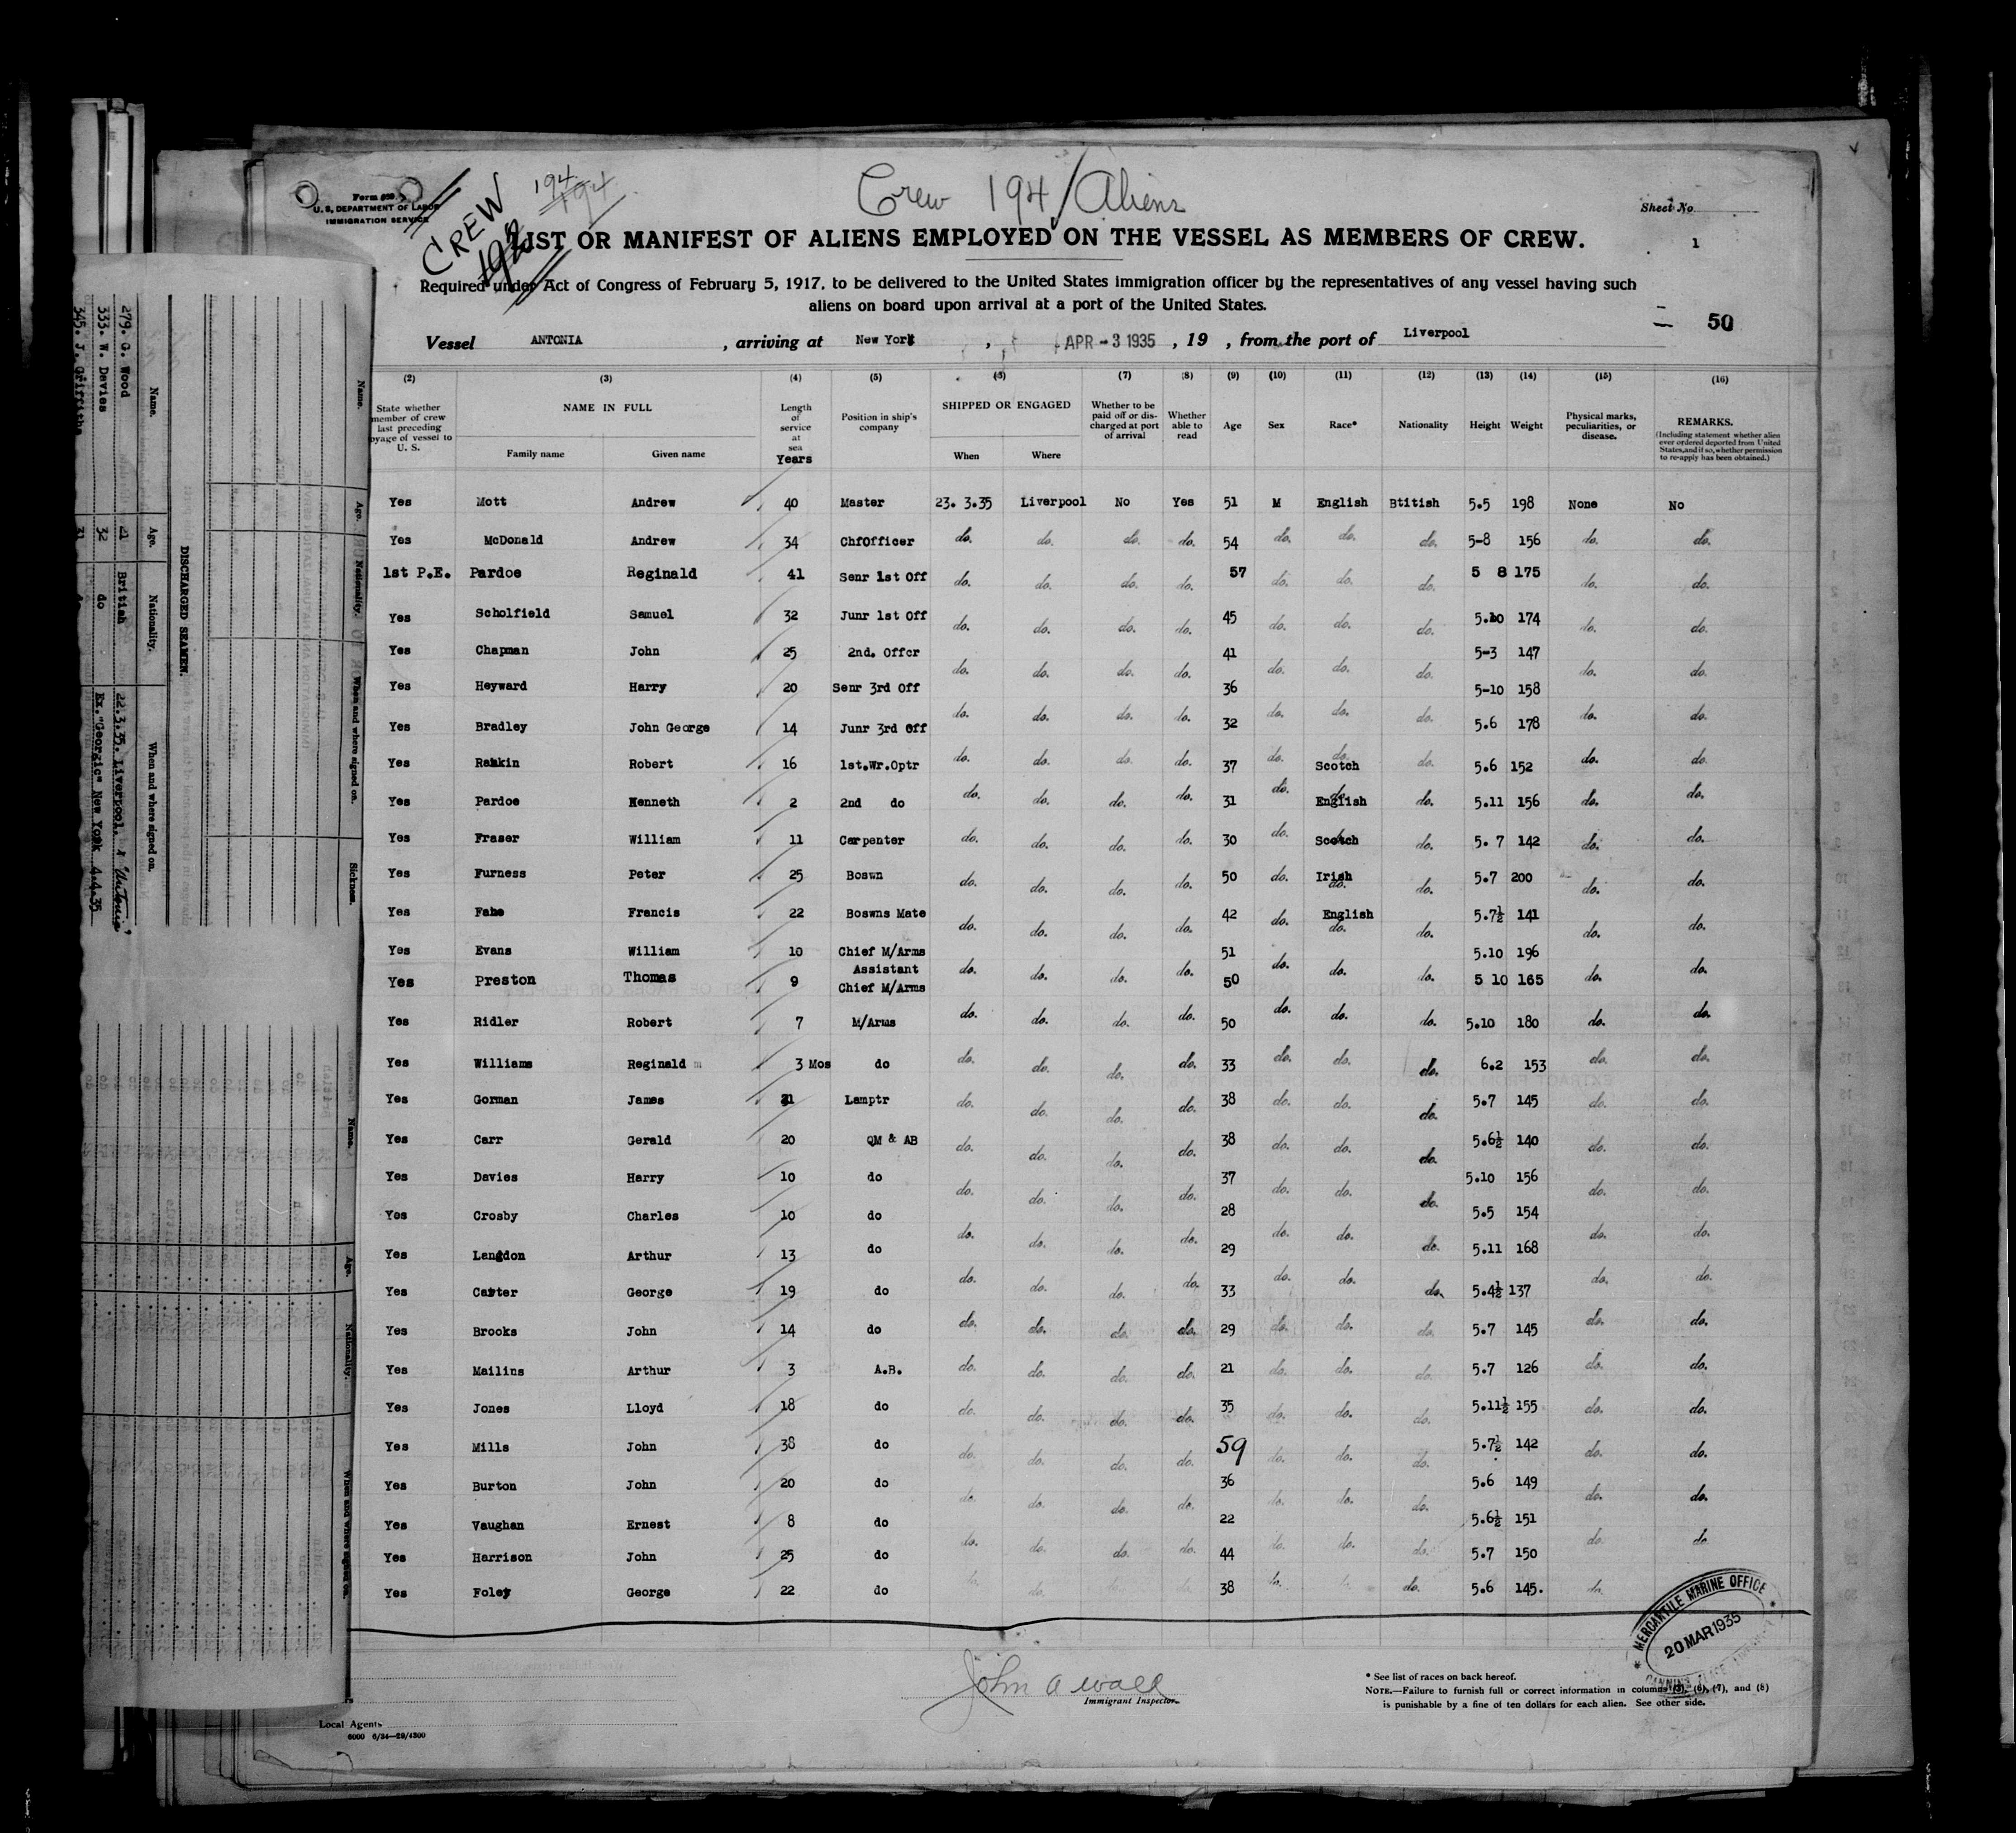 Form 680
U. S. DEPARTMENT OF LABOR
IMMIGRATION SERVICE
CREW
192
194
194
Crew 194 / Aliens
Sheet No.
1
LIST OR MANIFEST OF ALIENS EMPLOYED ON THE VESSEL AS MEMBERS OF CREW.
Required under Act of Congress of February 5, 1917, to be delivered to the United States immigration officer by the representatives of any vessel having such
aliens on board upon arrival at a port of the United States.
50
Vessel ANTONIA , arriving at New York , APR -3 1935 , 19 , from the port of Liverpool
(2) (3) (4) (5) (6) (7) (8) (9) (10) (11) (12) (13) (14) (15) (16)
State whether member of crew last preceding voyage of vessel to U. S. NAME IN FULL Family name Given name Length of service at sea Years Position in ship's company SHIPPED OR ENGAGED When Where Whether to be paid off or discharged at port of arrival Whether able to read Age Sex Race* Nationality Height Weight Physical marks, peculiarities, or disease. REMARKS. (Including statement whether alien ever ordered deported from United States, and if so, whether permission to re-apply has been obtained.)
Yes Mott Andrew 40 Master 23. 3.35 Liverpool No Yes 51 M English Btitish 5.5 198 None No
Yes McDonald Andrew 34 ChfOfficer do. do. do. do. 54 do. do. do. 5-8 156 do. do.
1st P.E. Pardoe Reginald 41 Senr 1st Off do. do. do. do. 57 do. do. do. 5 8 175 do. do.
Yes Scholfield Samuel 32 Junr 1st Off do. do. do. do. 45 do. do. do. 5.10 174 do. do.
Yes Chapman John 25 2nd. Offcr do. do. do. do. 41 do. do. do. 5-3 147 do. do.
Yes Heyward Harry 20 Senr 3rd Off do. do. do. do. 36 do. do. do. 5-10 158 do. do.
Yes Bradley John George 14 Junr 3rd Off do. do. do. do. 32 do. do. do. 5.6 178 do. do.
Yes Rankin Robert 16 1st.Wr.Optr do. do. do. do. 37 do. Scotch do. 5.6 152 do. do.
Yes Pardoe Kenneth 2 2nd do do. do. do. do. 31 do. English do. 5.11 156 do. do.
Yes Fraser William 11 Carpenter do. do. do. do. 30 do. Scotch do. 5. 7 142 do. do.
Yes Furness Peter 25 Boswn do. do. do. do. 50 do. Irish do. 5.7 200 do. do.
Yes Fahe Francis 22 Boswns Mate do. do. do. do. 42 do. English do. do. 5.7½ 141 do. do.
Yes Evans William 10 Chief M/Arms 51 5.10 196
Yes Preston Thomas 9 Assistant Chief M/Arms do. do. do. do. 50 do. do. do. 5 10 165 do. do.
Yes Ridler Robert 7 M/Arms do. do. do. do. 50 do. do. do. 5.10 180 do. do.
Yes Williams Reginald 3 Mos do do. do. do. do. 33 do. do. do. 6.2 153 do. do.
Yes Gorman James Lamptr do. do. do. do. 38 do. do. do. 5.7 145 do. do.
Yes Carr Gerald 20 QM & AB do. do. do. do. 38 do. do. do. 5.6½ 140 do. do.
Yes Davies Harry 10 do do. do. do. do. 37 do. do. do. 5.10 156 do. do.
Yes Crosby Charles 10 do do. do. do. do. 28 do. do. do. 5.5 154 do. do.
Yes Langdon Arthur 13 do 29 do. 5.11 168
Yes Carter George 19 do do. do. do. do. 33 do. do. do. 5.4½ 137 do. do.
Yes Brooks John 14 do do. do. do. do. 29 do. do. do. 5.7 145 do. do.
Yes Mailins Arthur 3 A.B. do. do. do. do. 21 do. do. do. 5.7 126 do. do.
Yes Jones Lloyd 18 do do. do. do. do. 35 do. do. do. 5.11½ 155 do. do.
Yes Mills John 38 do do. do. do. do. 59 do. do. do. 5.7½ 142 do. do.
Yes Burton John 20 do do. do. do. do. 36 do. do. do. 5.6 149 do. do.
Yes Vaughan Ernest 8 do do. do. do. do. 22 do. do. do. 5.6½ 151 do. do.
Yes Harrison John 25 do 44 5.7 150
Yes Foley George 22 do do. do. 38 do. do. 5.6 145. do.
MERCANTILE MARINE OFFICE
20 MAR 1935
John A Wall
Immigrant Inspector.
* See list of races on back hereof.
NOTE.—Failure to furnish full or correct information in columns (3), (6), (7), and (8)
is punishable by a fine of ten dollars for each alien. See other side.
Local Agents
6000 6/34—29/4300
DISCHARGED SEAMEN.
Name. Age. Nationality. When and where signed on.
279. G. Wood 21 British 22.3.35. Liverpool. "Antonia"
333. W. Davies 32 do Ex. "Georgic" New York 4.4.35
345. J. Griffiths 31 do
Name. Age. Nationality. When and where signed on. Sickness.
Name. Age. Nationality. When and where signed on.